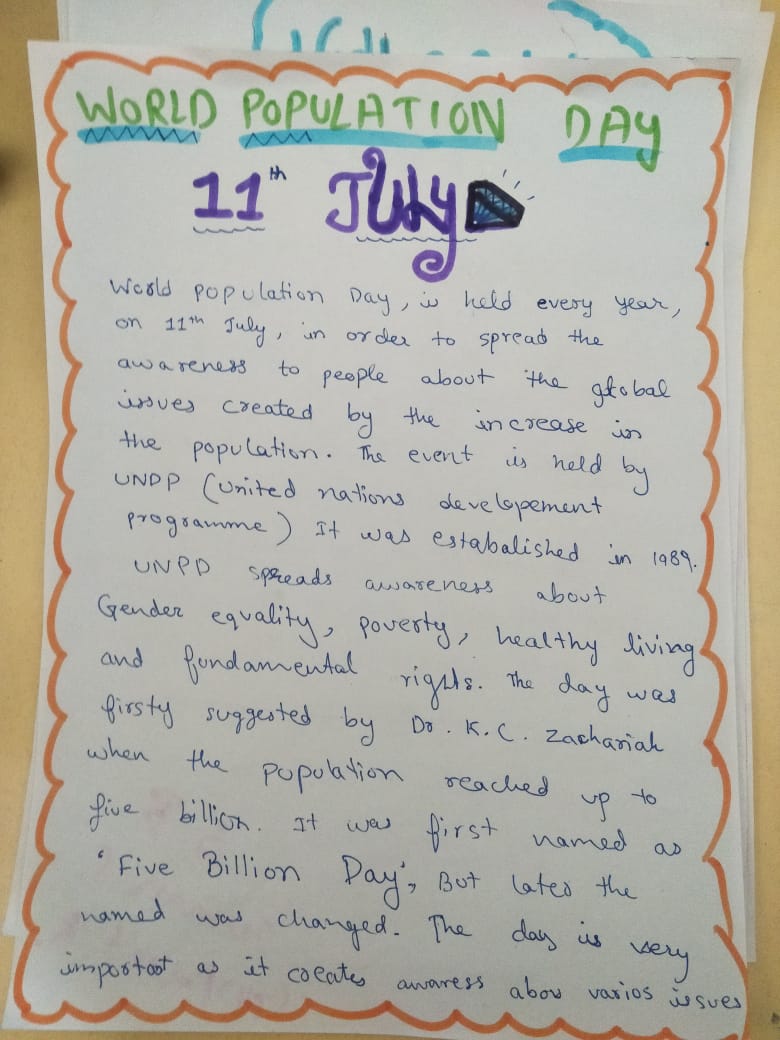 WORLD POPULATION DAY
11th July
World population Day, is held every year,
on 11th July, in order to spread the
awareness to people about the global
issues created by the increase in
the population. The event is held by
UNDP (United nations developement
programme) It was estabalished in 1989.
UNPD spreads awareness about
Gender equality, poverty, healthy living
and fundamental rights. The day was
firsty suggested by Dr. K.C. Zachariah
when the population reached up to
five billion. It was first named as
'Five Billion Day', But later the
named was changed. The day is very
important as it creates awaress abou varios issues